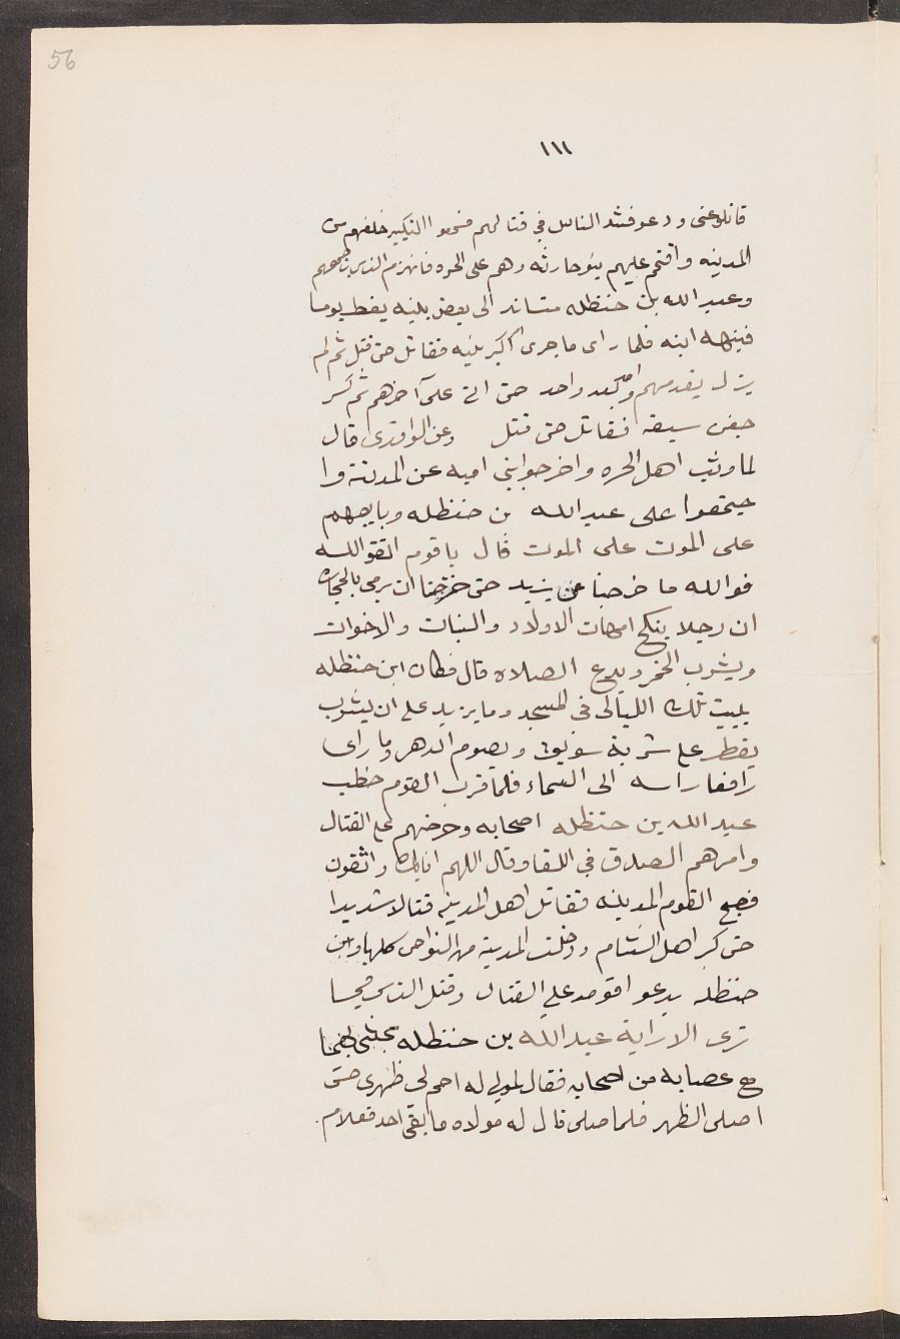 56
١١١
قاتلوعنى ودعو فشد الناس فى قتالهم فسمعوا التكبير خلفهم من
المدينه واقتحم عليهم بنو حارثه وهم على الحره فانهزم الناس
وعبد الله بن حنظله متساند الى بعض بنيه يغط يوما
فينبهه ابنه فلما راى ما جرى اكبر بنيه فقاتل حتى قتل ثم لم
يزل يقدمهم واحد بعد واحد حتى اتى على آخرهم ثم كسر
جفن سيفه فقاتل حتى قتل وعن الواقدى قال
لما وثب اهل الحره واخرجوا بنى اميه عن المدينة وا
جتمعوا على عبد الله بن حنظله وبايعهم
على الموت على الموت قال ياقوم اتقو الله
فوالله ما خرجنا عن يزيد حتى خفنا ان نرمى بالحجاره
ان رجلا ينكح امهات الاولاد والبنات والاخوات
ويشرب الخمر ويدع الصلاه قال فكان ابن حنظله
يبيت تلك الليالى فى المسجد وما يزيد على ان يشرب
يفطر على شربة سويق ويصوم الدهر وما راى
رافعا راسه الى السماء فلما قرب القوم خطب
عبد الله بن حنظله اصحابه وحرضهم على القتال
وامرهم الصدق فى اللقا وقال اللهم انا بك واثقون
فصبح القوم المدينه فقاتل اهل المدينه قتالا شديدا
حتى كبر اهل الشام ودخلت المدينة من النواحى كلها وابن
حنظله يدعو اقومه على القتال وقتل الناس فما
ترى الا راية عبد الله بن حنظله
مع عصابه من اصحابه فقال لمولى له احم لى ظهرى حتى
اصلى الظهر فلما صلى قال له مولاه ما بقى احد فعلام